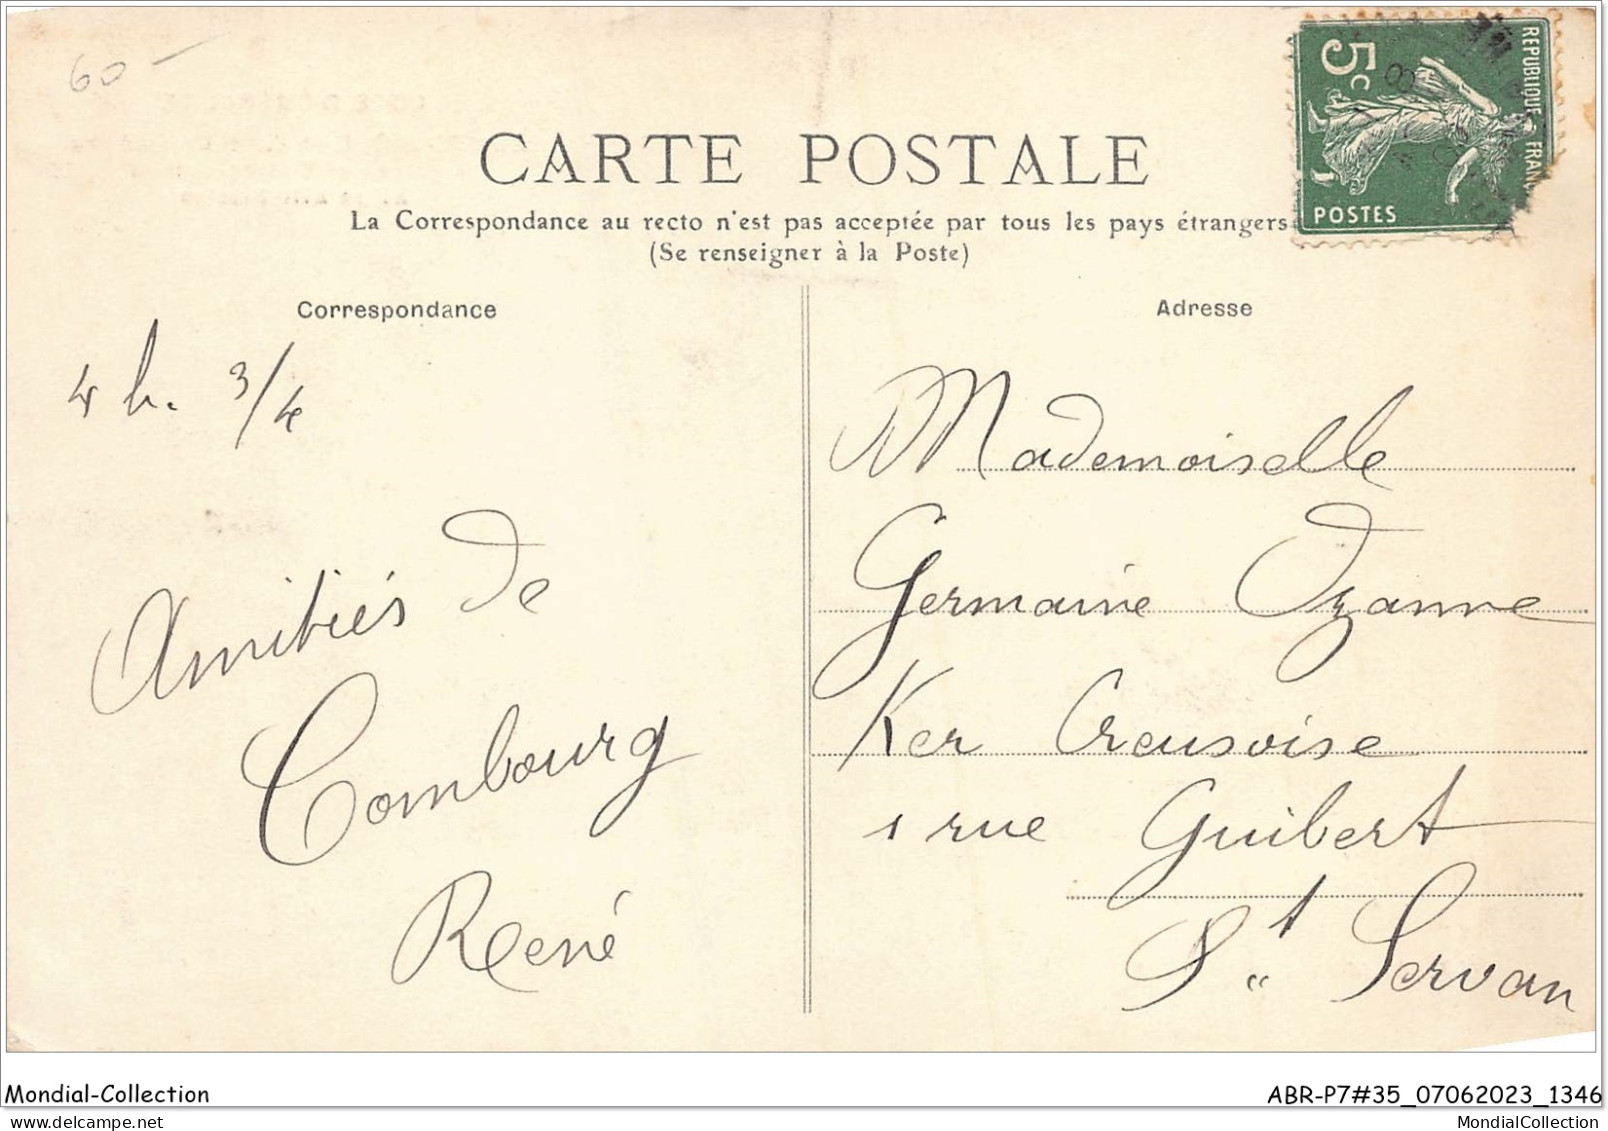 60 -
CARTE POSTALE
La Correspondance au recto n'est pas acceptée par tous les pays étrangers
(Se renseigner à la Poste)
REPUBLIQUE FRANC
5c
POSTES
Correspondance
4 h. 3/4
Amitiés de
Combourg
René
Adresse
Mademoiselle
Germaine Ozanne
Ker Creusoise
1 rue Guibert
St Servan
Mondial-Collection
ABR-P7#35_07062023_1346
MondialCollection